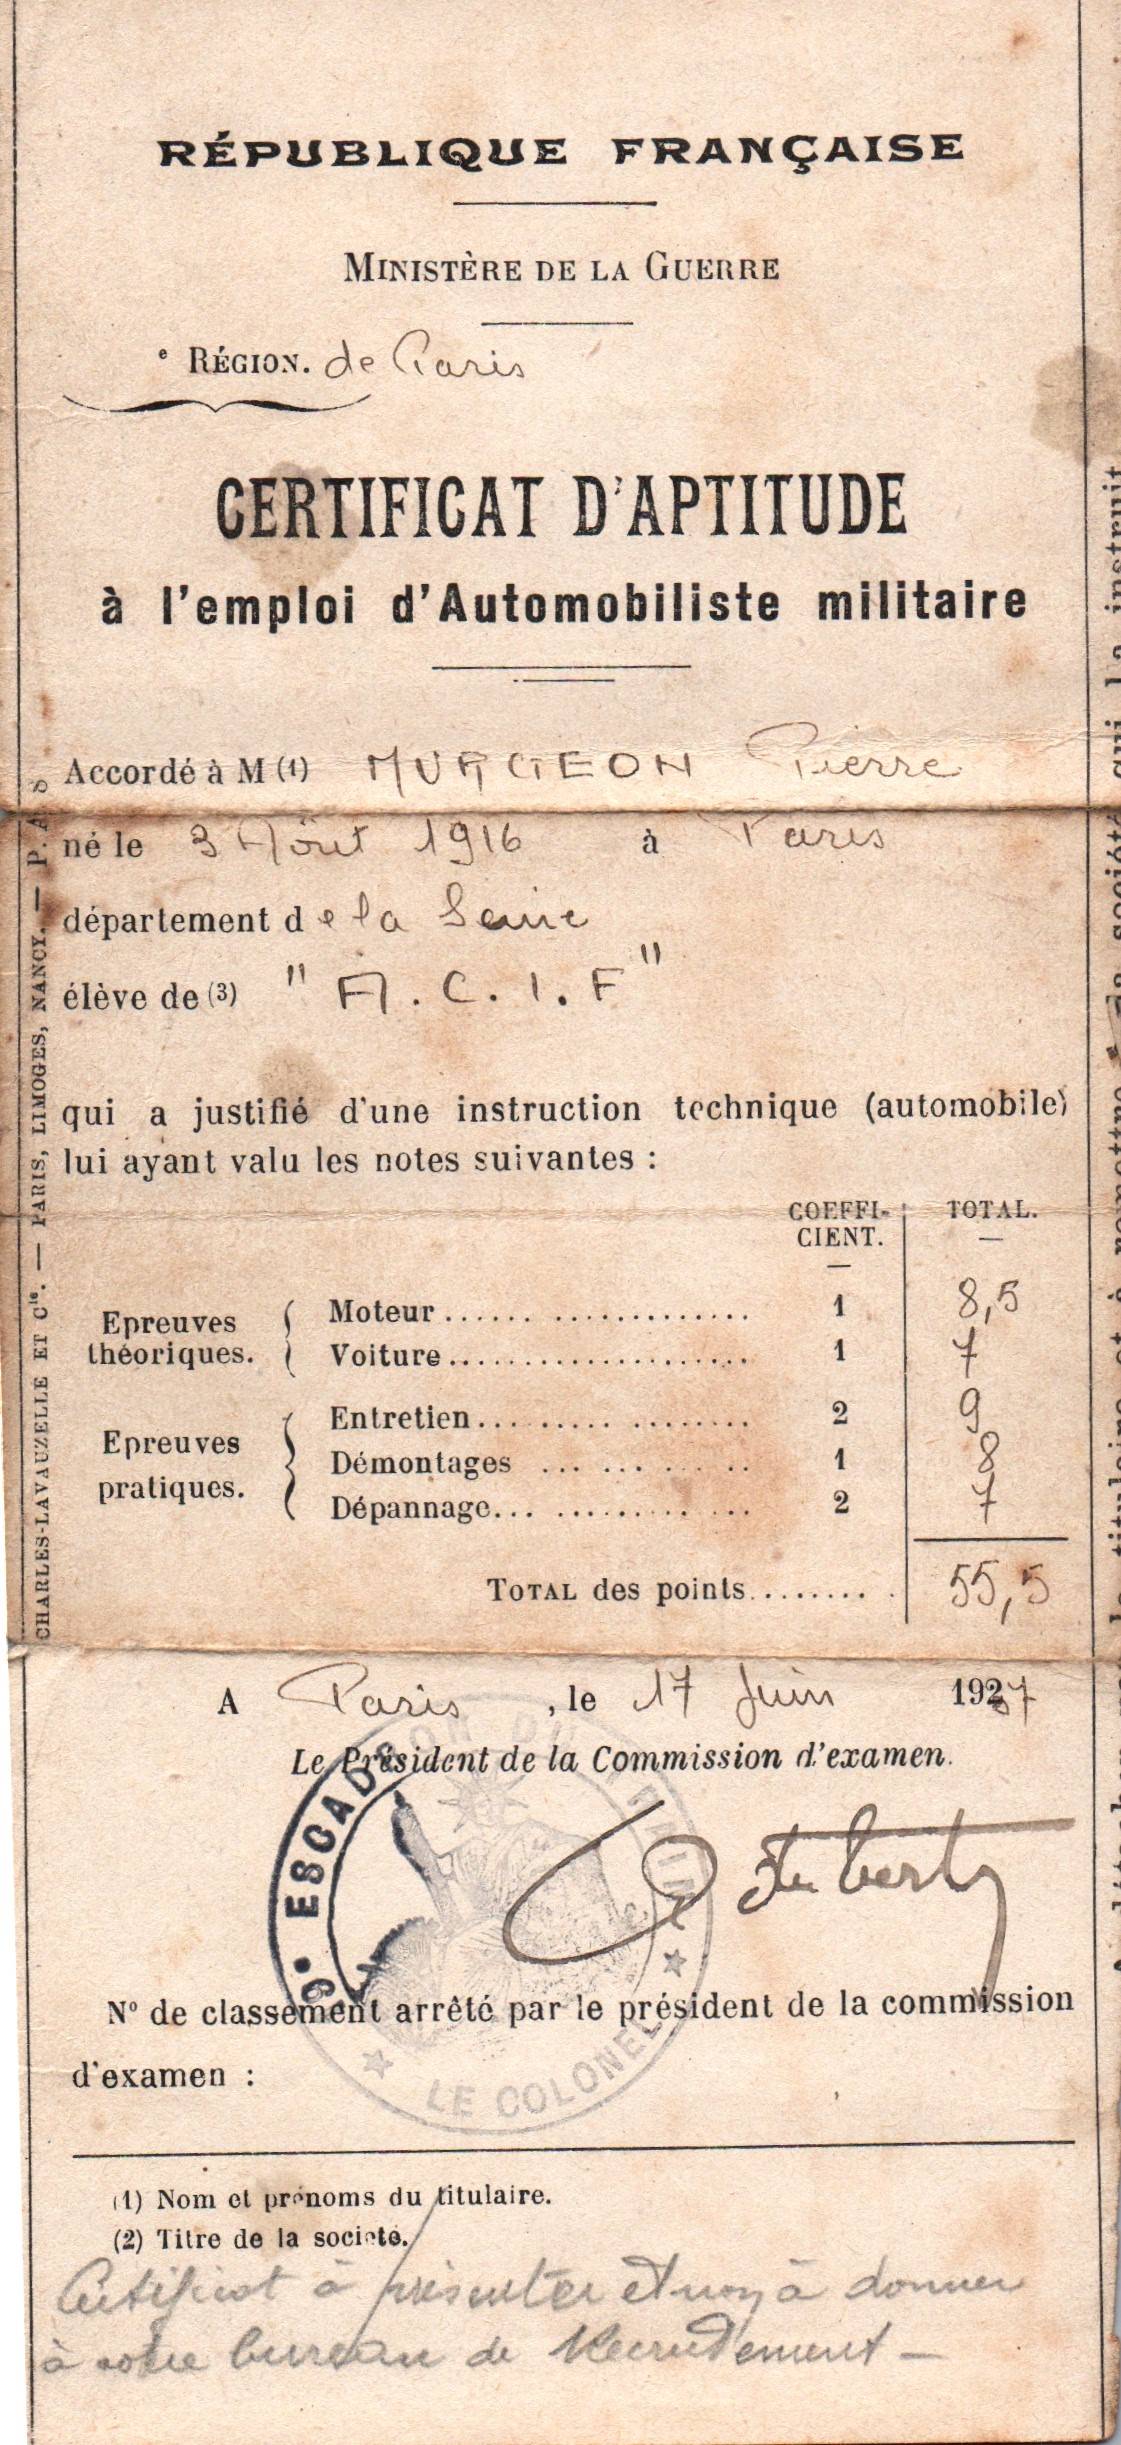 RÉPUBLIQUE FRANÇAISE
MINISTÈRE DE LA GUERRE
e RÉGION. de Paris
CERTIFICAT D'APTITUDE
à l'emploi d'Automobiliste militaire
Accordé à M (1) MURGEON Pierre
né le 3 Août 1916 à Paris
département de la Seine
élève de (3) "A.C.I.F"
qui a justifié d'une instruction technique (automobile)
lui ayant valu les notes suivantes :
COEFFI-CIENT. TOTAL.
Epreuves théoriques. Moteur 1 8,5
Voiture 1 7
Epreuves pratiques. Entretien 2 9
Démontages 1 8
Dépannage 2 7
TOTAL des points 55,5
A Paris, le 17 Juin 1937
Le Président de la Commission d'examen.
ESCAD DU TRAIN
LE COLONEL
N° de classement arrêté par le président de la commission
d'examen :
(1) Nom et prénoms du titulaire.
(2) Titre de la société.
Certificat à présenter et non à donner
à votre bureau de Recrutement —
CHARLES-LAVAUZELLE ET Cie. — PARIS, LIMOGES, NANCY. —